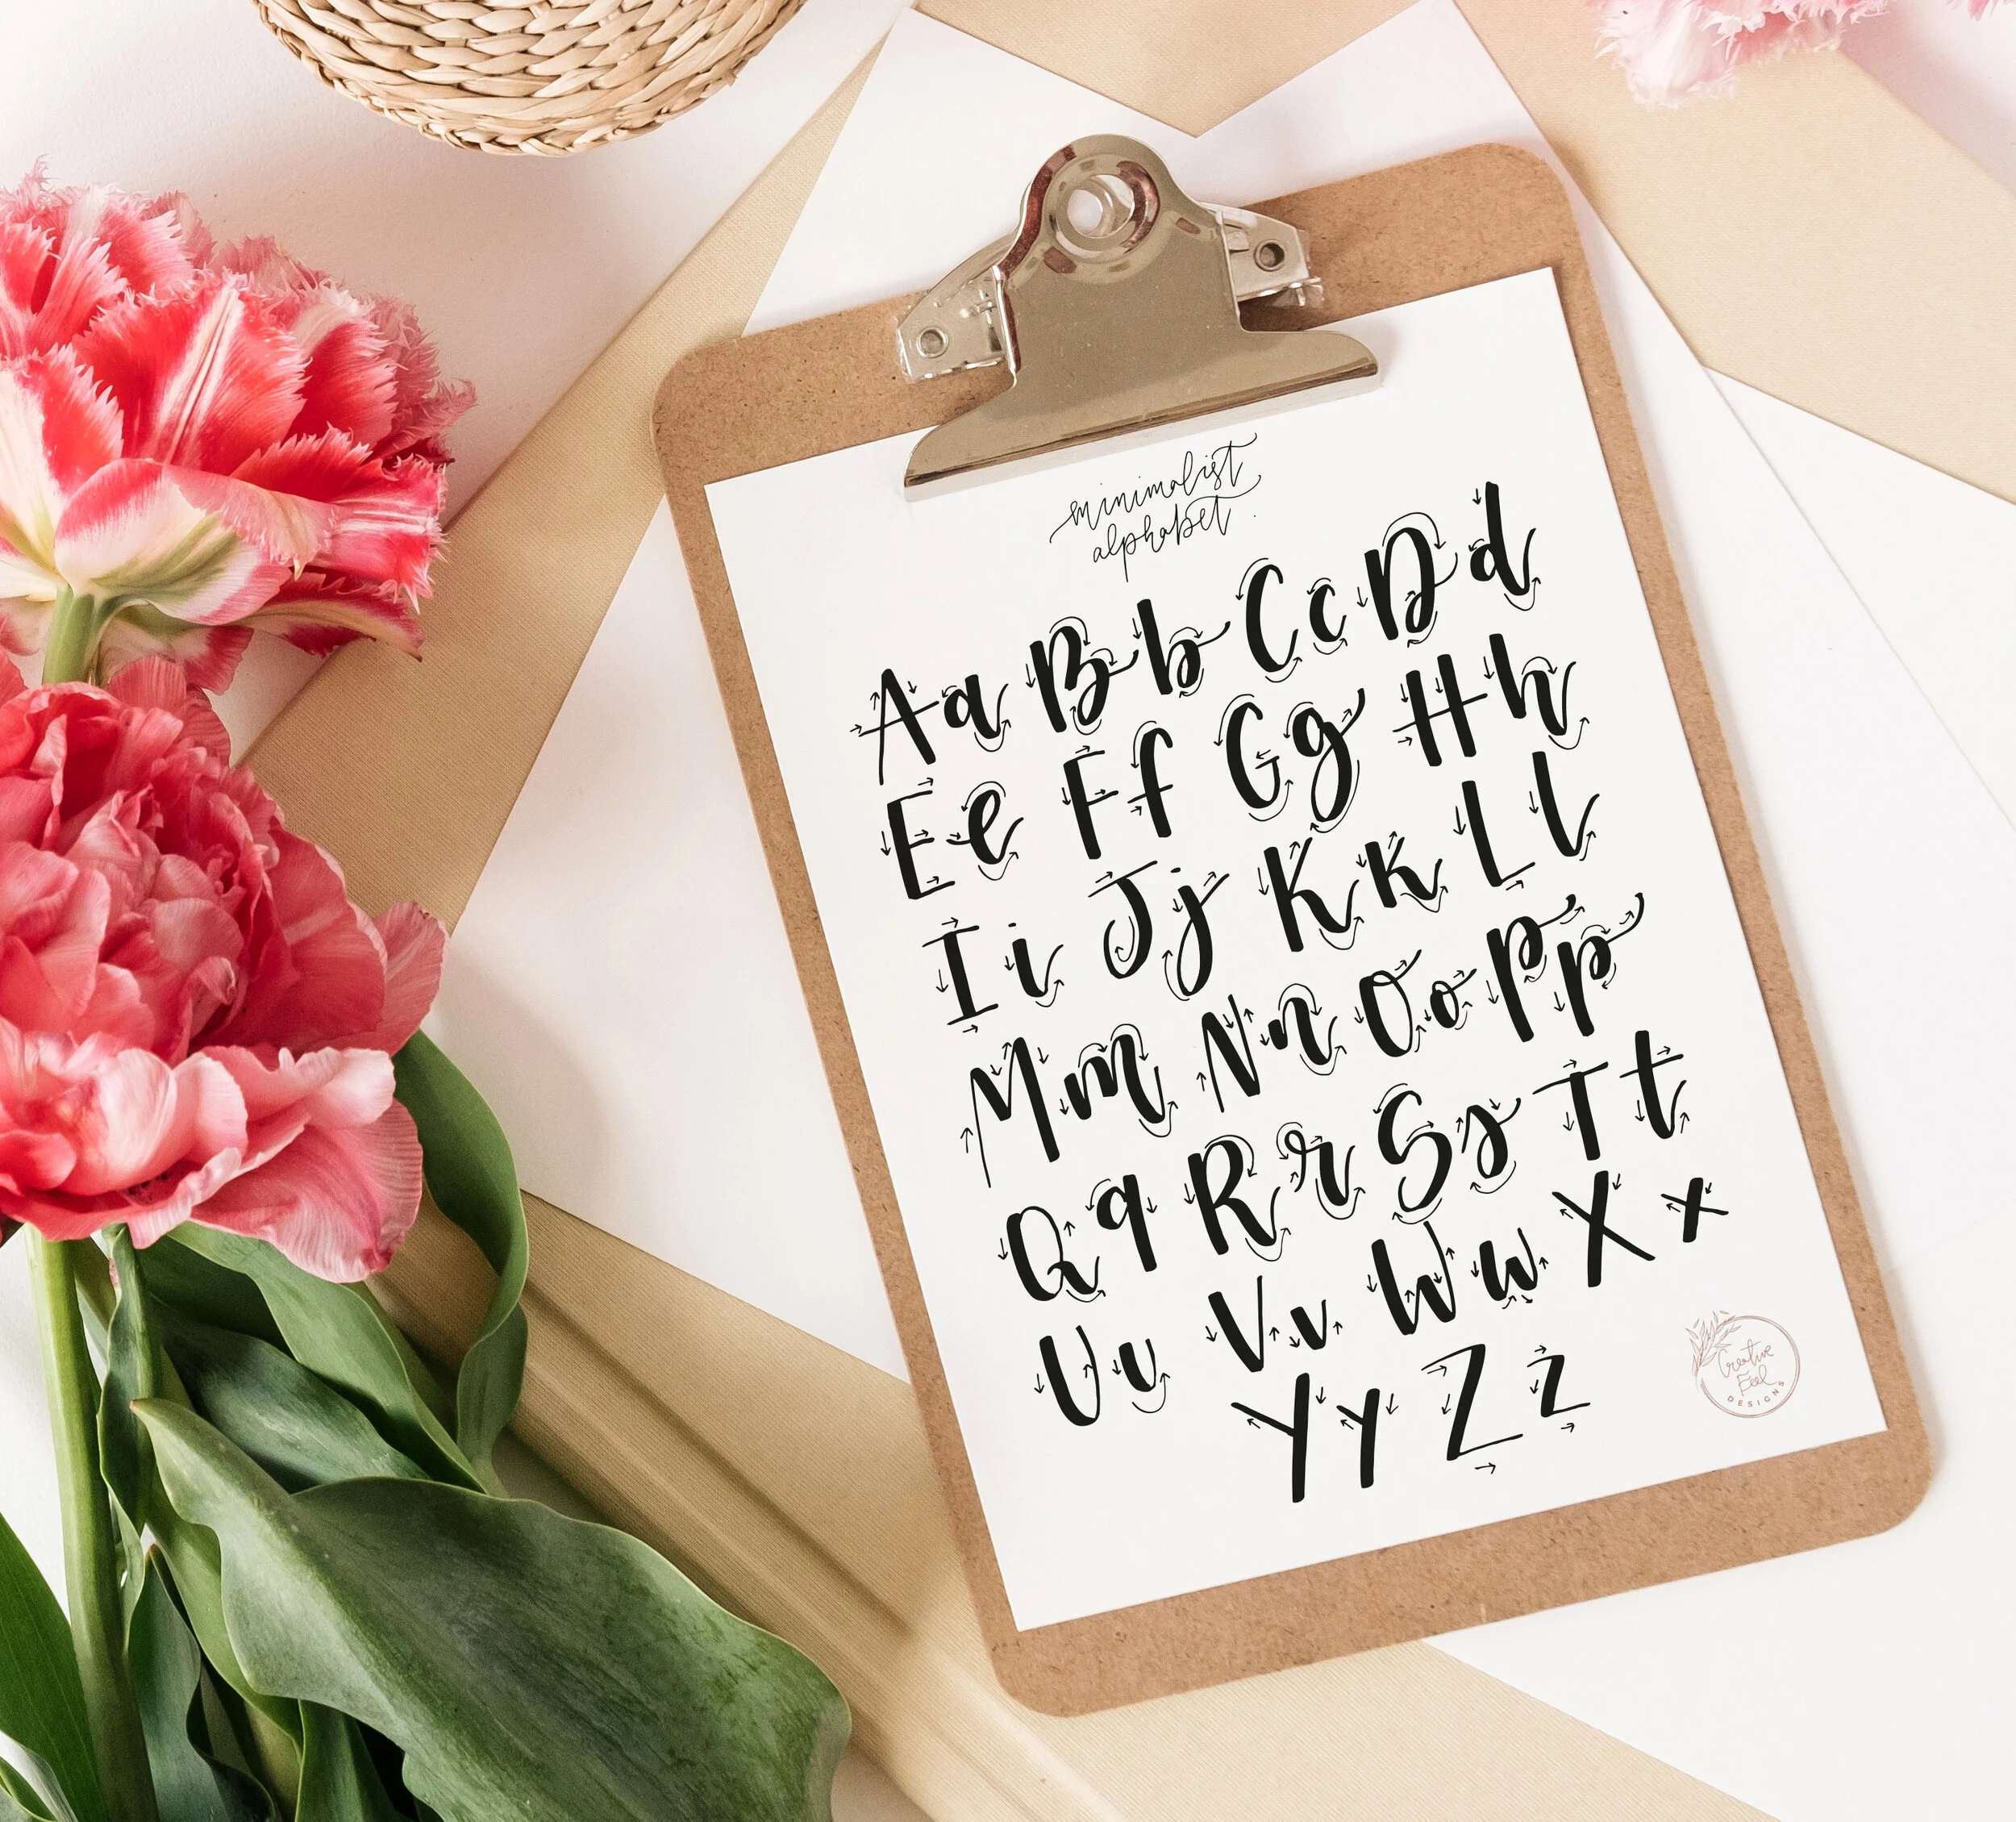 minimalist
alphabet.
Aa Bb Cc Dd
Ee Ff Gg Hh
Ii Jj Kk Ll
Mm Nn Oo Pp
Qq Rr Ss Tt
Uu Vv Ww Xx
Yy Zz
Creative
Feel
DESIGNS